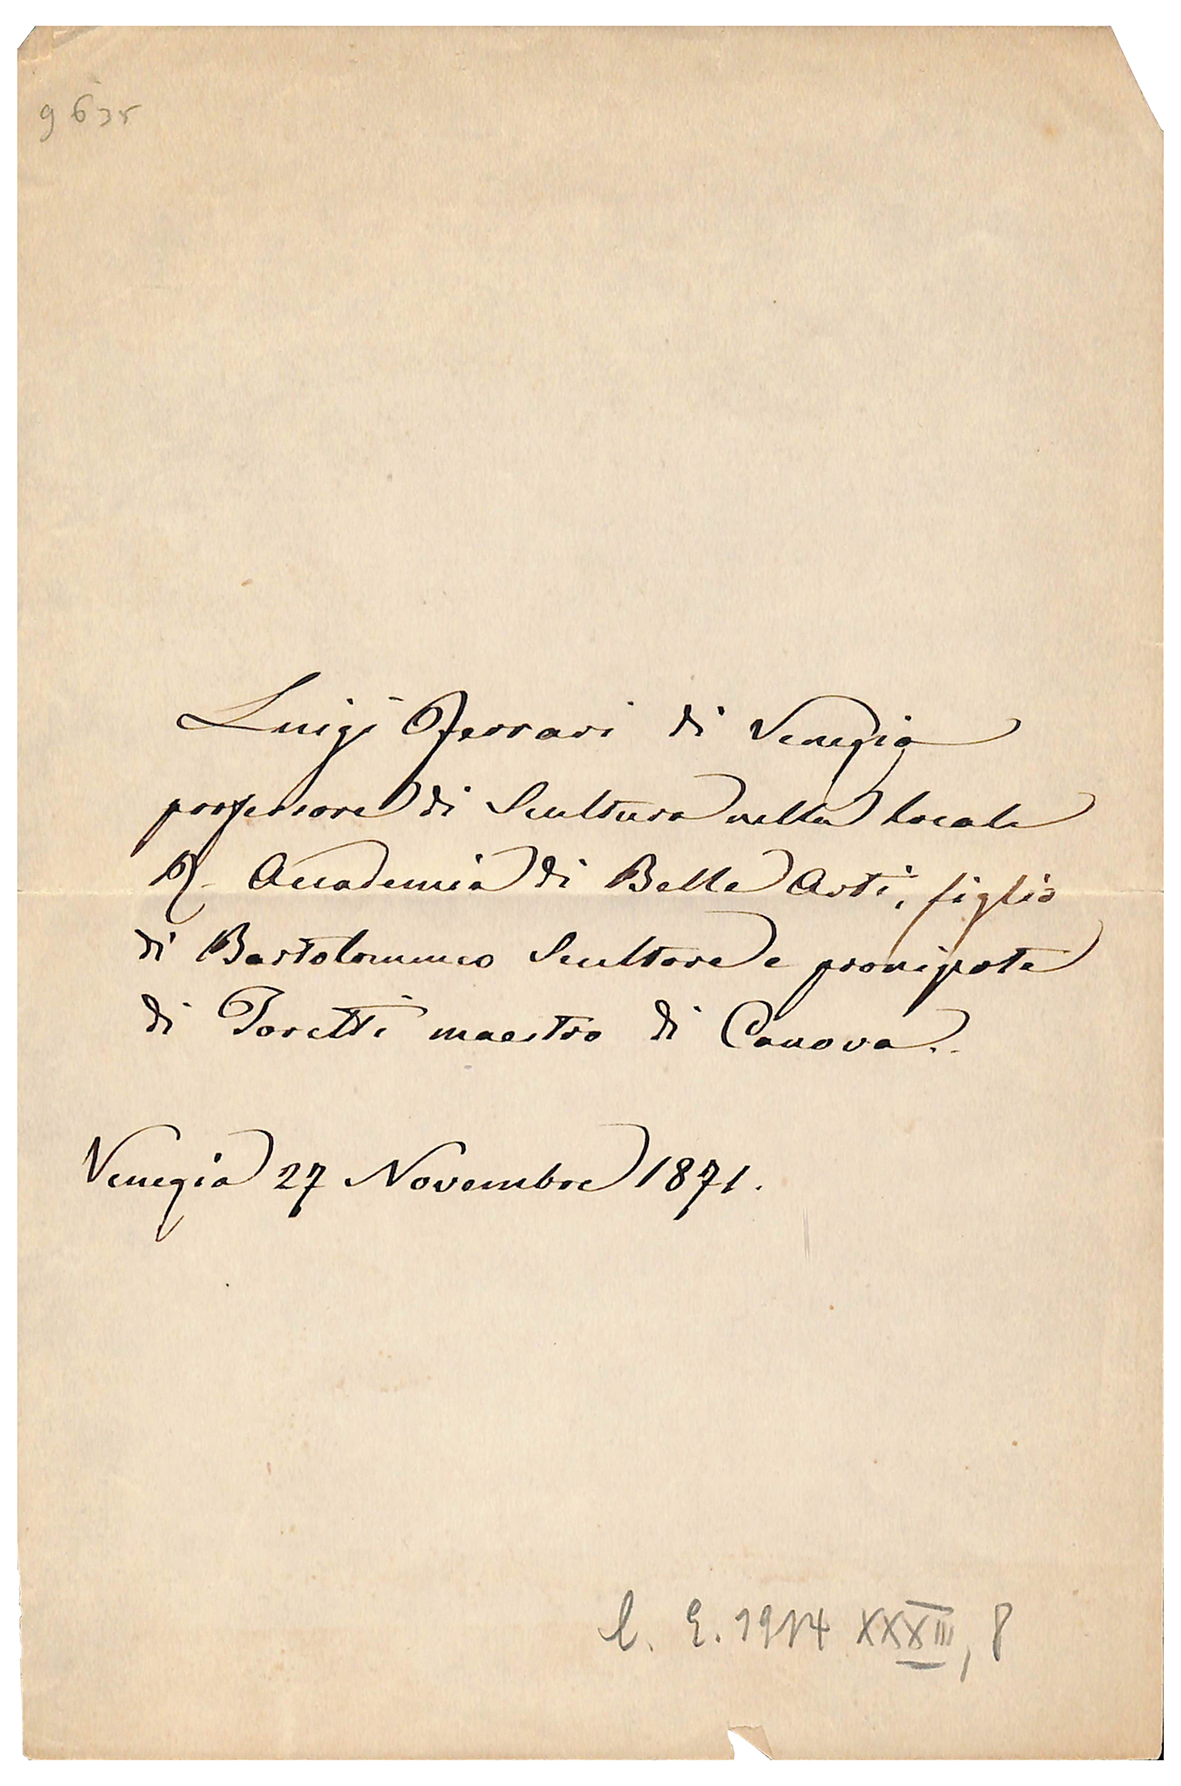 Luigi Ferrari di Venezia
professore di Scultura nella locale
R. Accademia di Belle Arti, figlio
di Bartolommeo Scultore e pronipote
di Toretti maestro di Canova.
Venezia 27 Novembre 1871.
l. E. 1914 XXXIII, 8